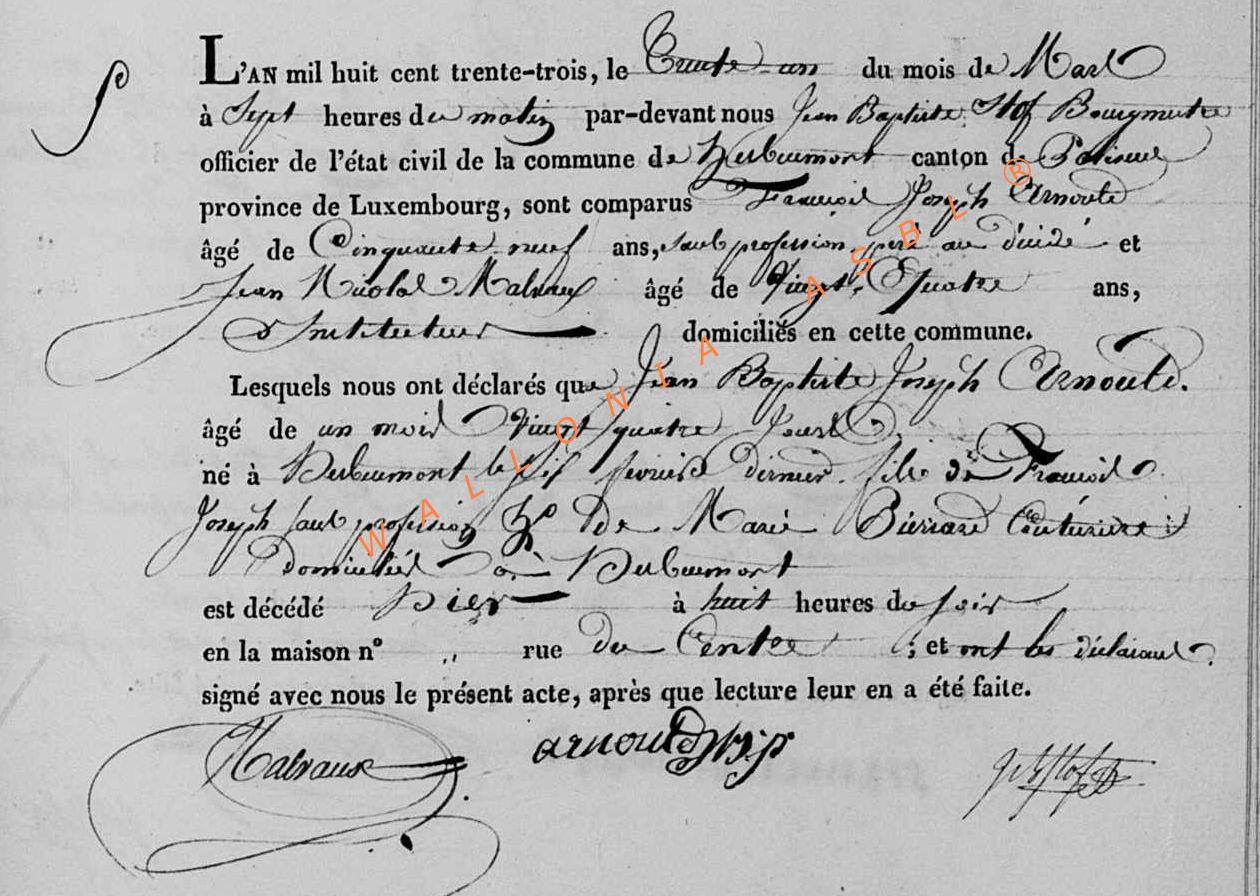 L'AN mil huit cent trente-trois, le Trente un du mois de Mars
à Sept heures du matin par-devant nous Jean Baptiste Stof Bourgmestre
officier de l'état civil de la commune de Herbeumont canton de Paliseul
province de Luxembourg, sont comparus François Joseph Arnould
âgé de Cinquante neuf ans, sans profession, père au décédé et
Jean Nicolas Malvaux âgé de Vingt Quatre ans,
Instituteur domiciliés en cette commune.
Lesquels nous ont déclarés que Jean Baptiste Joseph Arnould.
âgé de un mois Vingt quatre Jours
né à Herbeumont le Six février dernier fils de François
Joseph sans profession & de Marie Couturière
domiciliés à Herbeumont
est décédé hier à huit heures du soir
en la maison n° ,, rue du Centre ; et ont les déclarans
signé avec nous le présent acte, après que lecture leur en a été faite.
Malvaux arnould
WALLONIA ASBL ®